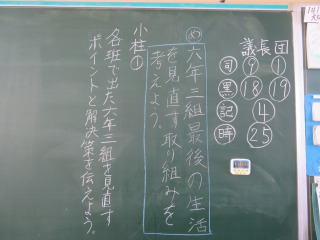 議長団
司 ⑨ ①
黒 ⑱ ⑲
記 ④
時 ㉕
め 六年三組最後の生活
を見直す取り組みを
考えよう。
小柱①
各班で出た六年三組を見直す
ポイントと解決策を伝えよう。